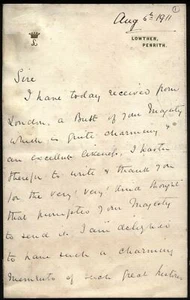 ①
Aug 6th 1911
L
LOWTHER,
PENRITH.
Sire
I have today received from
London, a Bust of Your Majesty
which is quite charming &
an excellent likeness. I hasten
therefore to write & thank You
for the very, very kind thought
that prompted Your Majesty
to send it. I am delighted
to have such a charming
memento of such great